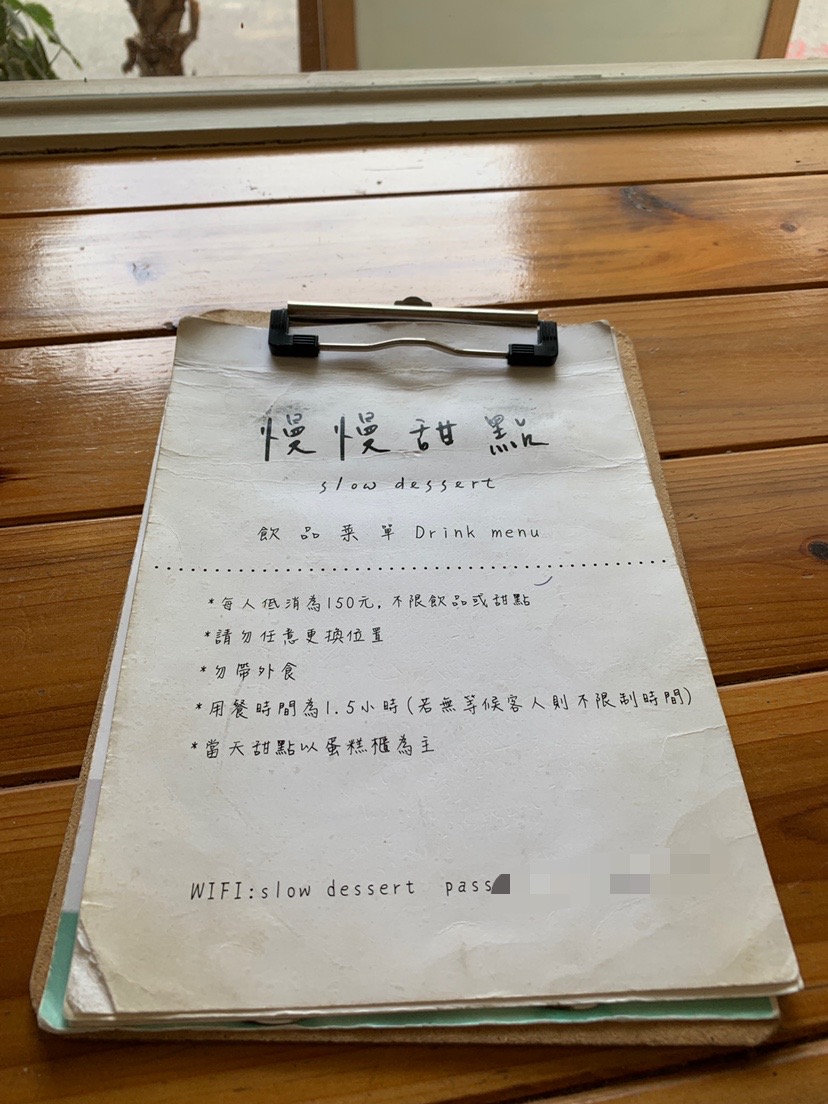 慢慢甜點
slow dessert
飲品菜單 Drink menu
*每人低消為150元,不限飲品或甜點
*請勿任意更換位置
*勿帶外食
*用餐時間為1.5小時(若無等候客人則不限制時間)
*當天甜點以蛋糕櫃為主
WIFI:slow dessert pass